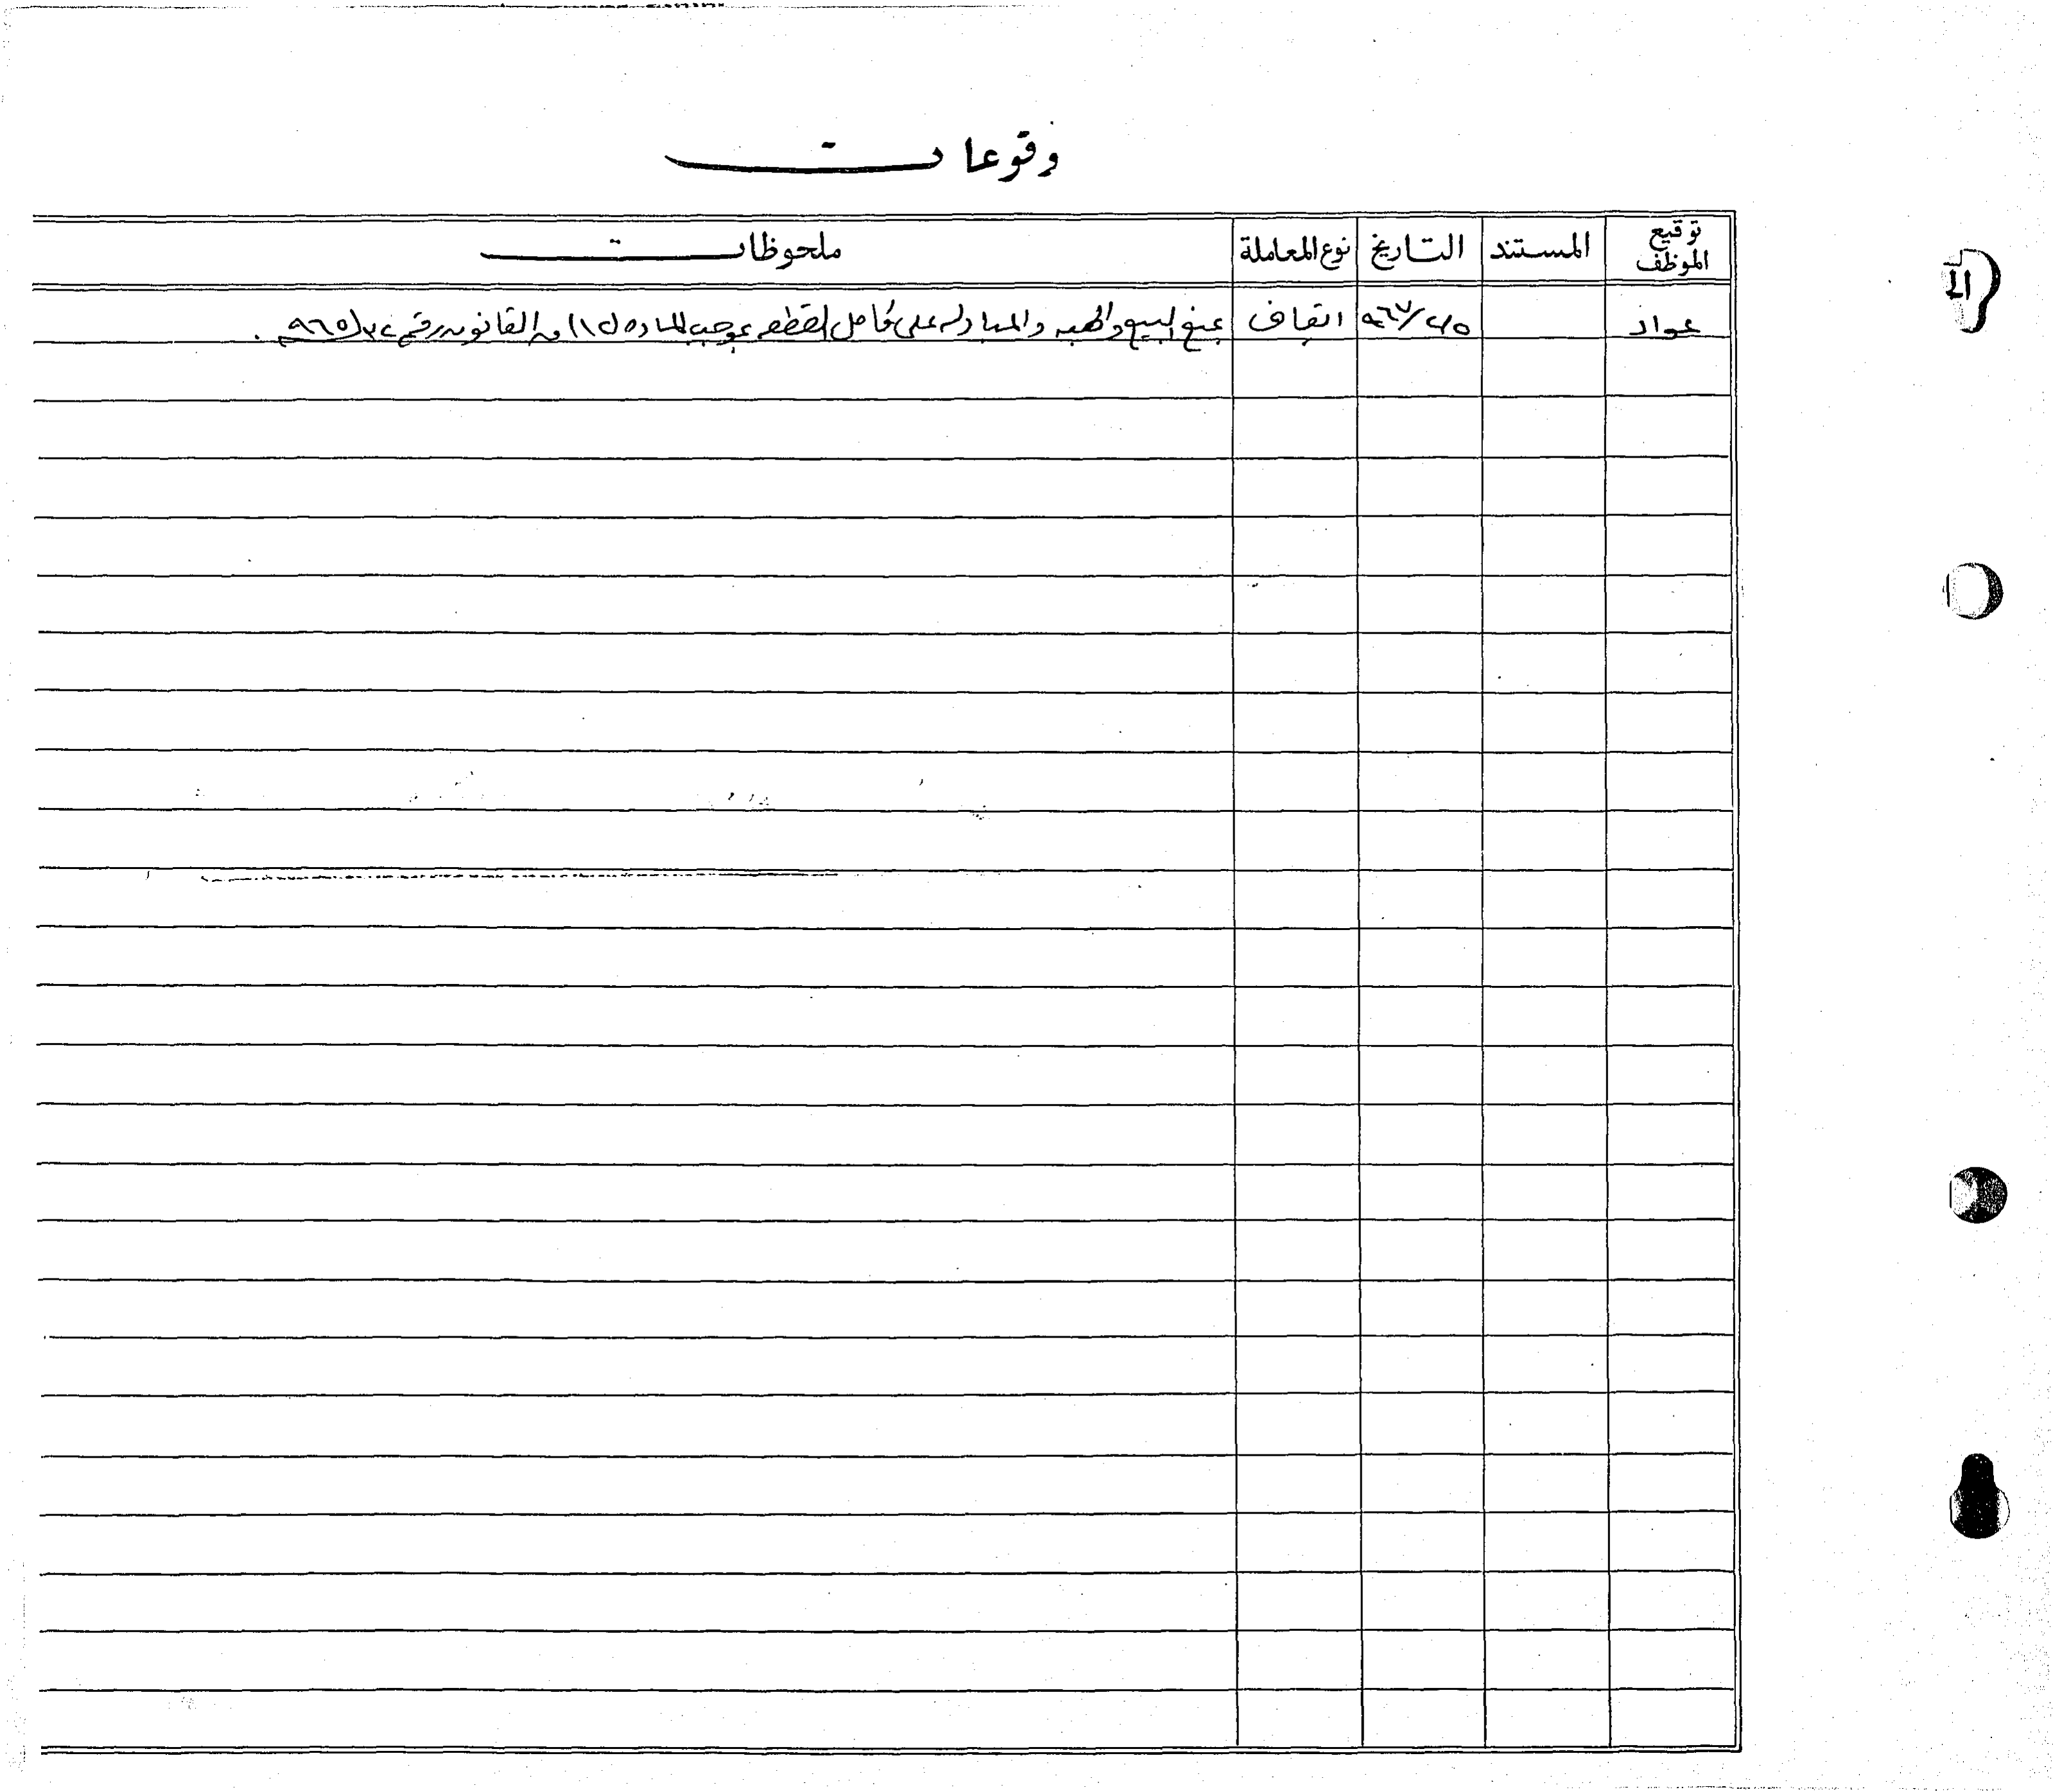 وقوعات
توقيع الموظف المستند التاريخ نوع المعاملة ملحوظات
عواد ٩٦٧/٢/٥ ايقاف يمنع البيع والهبه والمبادله على كامل القطعه بموجب الماده (١٢) من القانون رقم